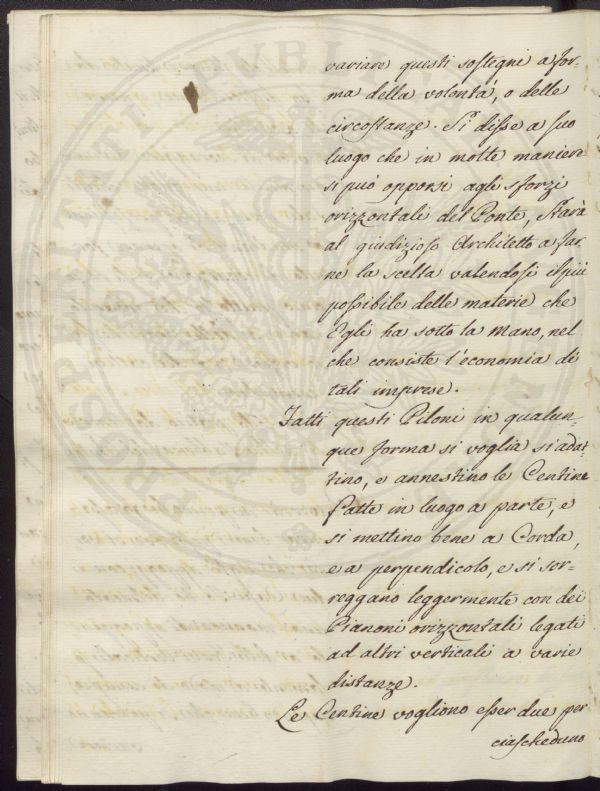 variare questi sostegni a for-
ma della volontà, o delle
circostanze. Si disse a suo
luogo che in molte maniere
si può opporsi agli sforzi
orizzontali del Ponte, Starà
al giudizioso Architetto a far-
ne la scelta valendosi il più
possibile delle materie che
Egli ha sotto la mano, nel
che consiste l'economia di
tali imprese.
Fatti questi Piloni in qualun-
que forma si voglia si adat-
tino, e annestino le Centine
fatte in luogo a parte, e
si mettino bene a Corda,
e a perpendicolo, e si sor-
reggano leggermente con dei
Pianoni orizzontali legati
ad altri verticali a varie
distanze.
Le Centine vogliono esser due per
ciascheduno